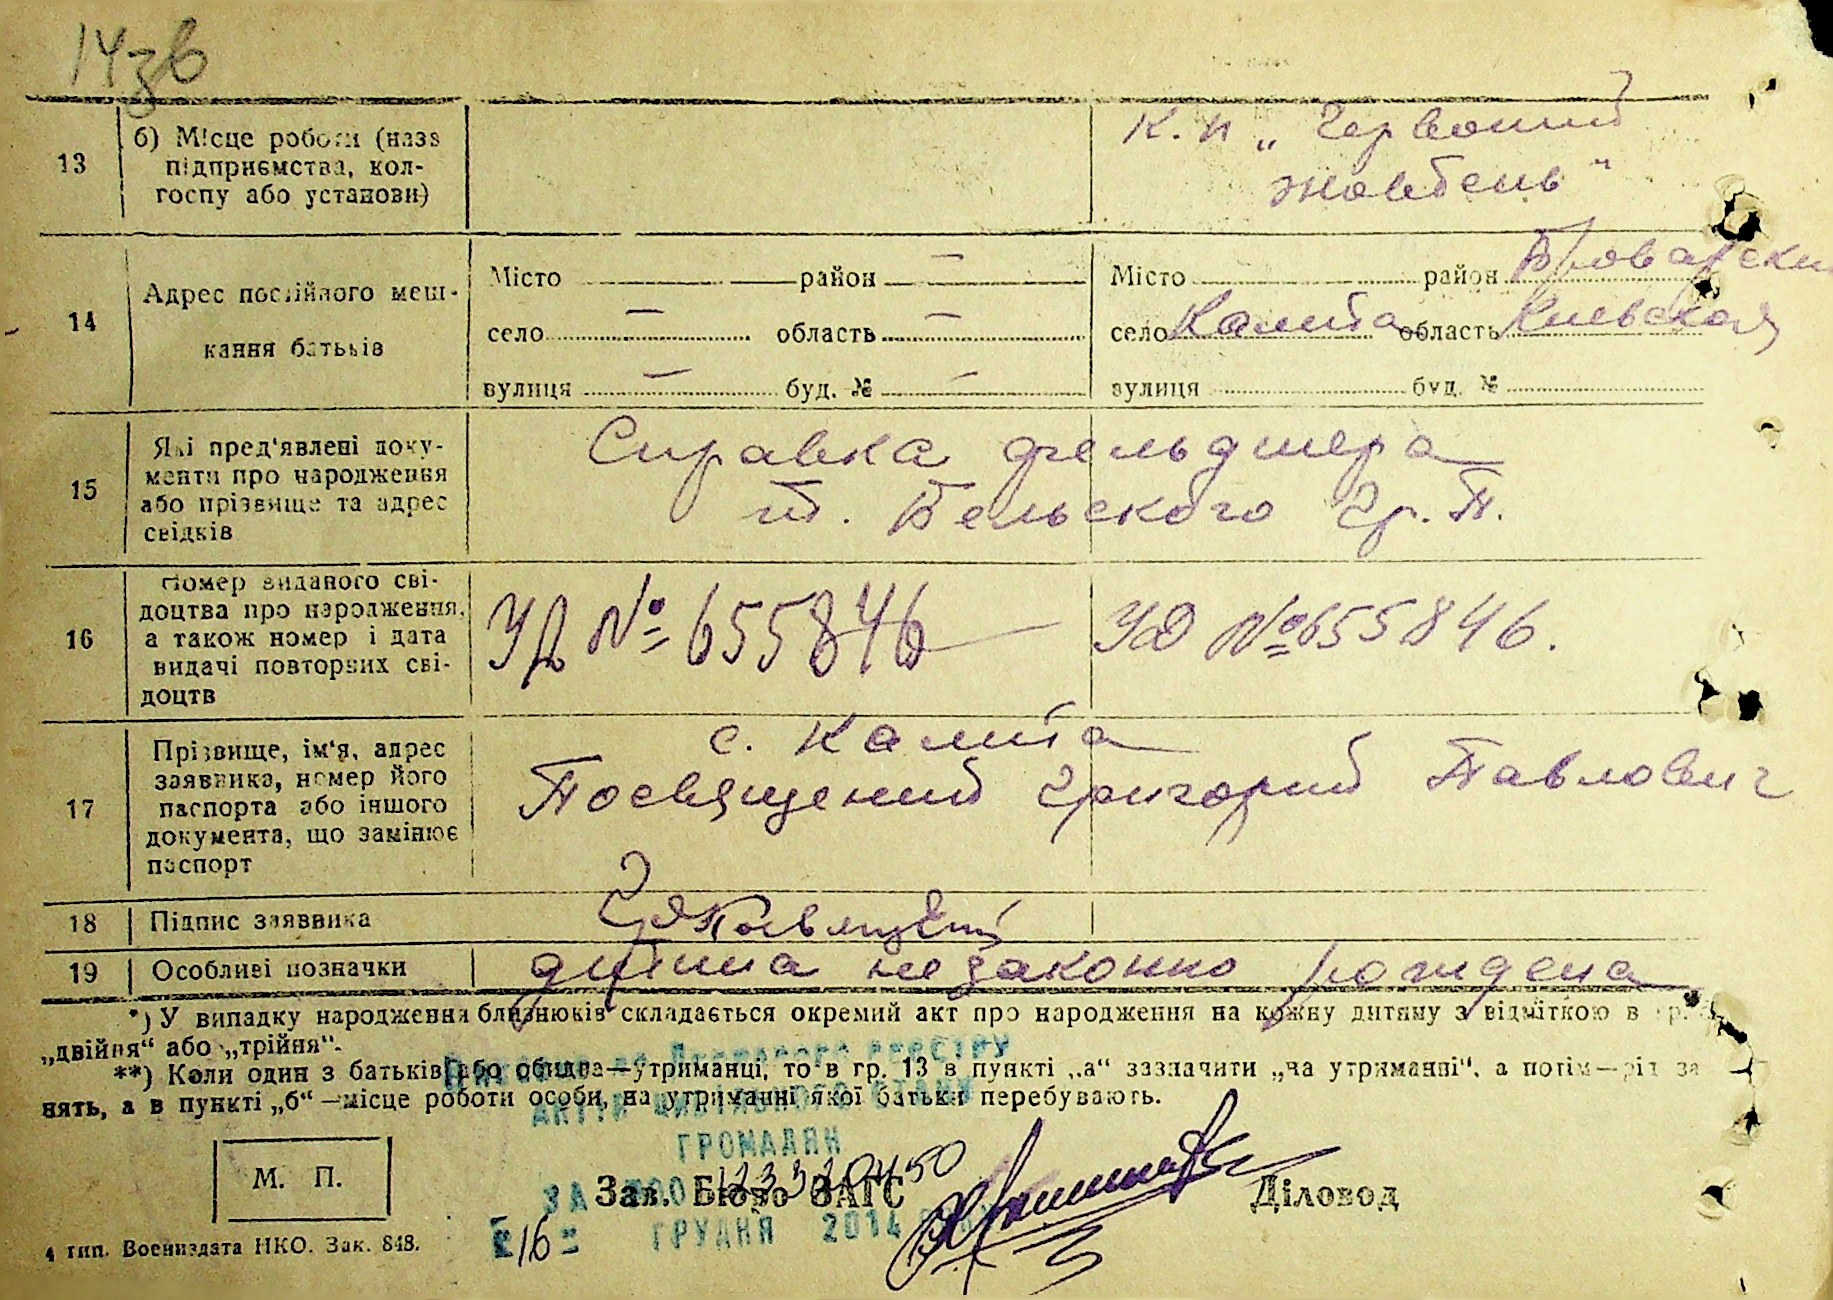 14зв
13
б) Місце роботи (назв
підприємства, кол-
госпу або установи)
к. п „Червоний
жовтень"
14
Адрес постійного меш-
кання батьків
Місто район — Місто район Броварский
село — область — село Калита область Киевская
вулиця — буд. № — вулиця буд. №
15
Які пред'явлені доку-
менти про народження
або прізвище та адрес
свідків
Справка фельдшера
т. Бельского Гр. П.
16
Номер виданого сві-
доцтва про народження,
а також номер і дата
видачі повторних сві-
доцтв
УД № 655846 УД № 655846.
17
Прізвище, ім'я, адрес
заявника, номер його
паспорта або іншого
документа, що замінює
паспорт
с. Калита
Посвящений Григорий Павлович
18 Підпис заявника
19 Особливі позначки дитина незаконно рождена
*) У випадку народження близнюків складається окремий акт про народження на кожну дитину з відміткою в гр.
„двійня“ або „трійня“.
**) Коли один з батьків або обидва—утриманці, то в гр. 13 в пункті „а“ зазначити „на утриманні“, а потім—рід за
нять, а в пункті „б“ —місце роботи особи, на утриманні якої батьки перебувають.
до Державного реєстру
актів цивільного стану
ГРОМАДЯН
ЗА № 00012332450
16 ГРУДНЯ 2014
М. П.
Зав. Бюро ЗАГС
Діловод
4 тип. Воениздата НКО. Зак. 848.